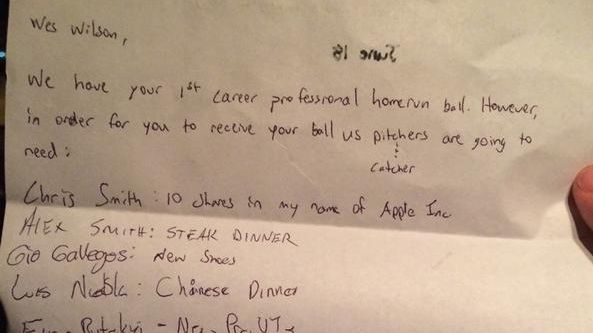 Wes Wilson,
June 18
We have your 1st career professional homerun ball. However,
in order for you to receive your ball us pitchers are going to
need:
+ catcher
Chris Smith: 10 shares in my name of Apple Inc
Alex Smith: STEAK DINNER
Gio Gallegos: New Shoes
Luis : Chinese Dinner